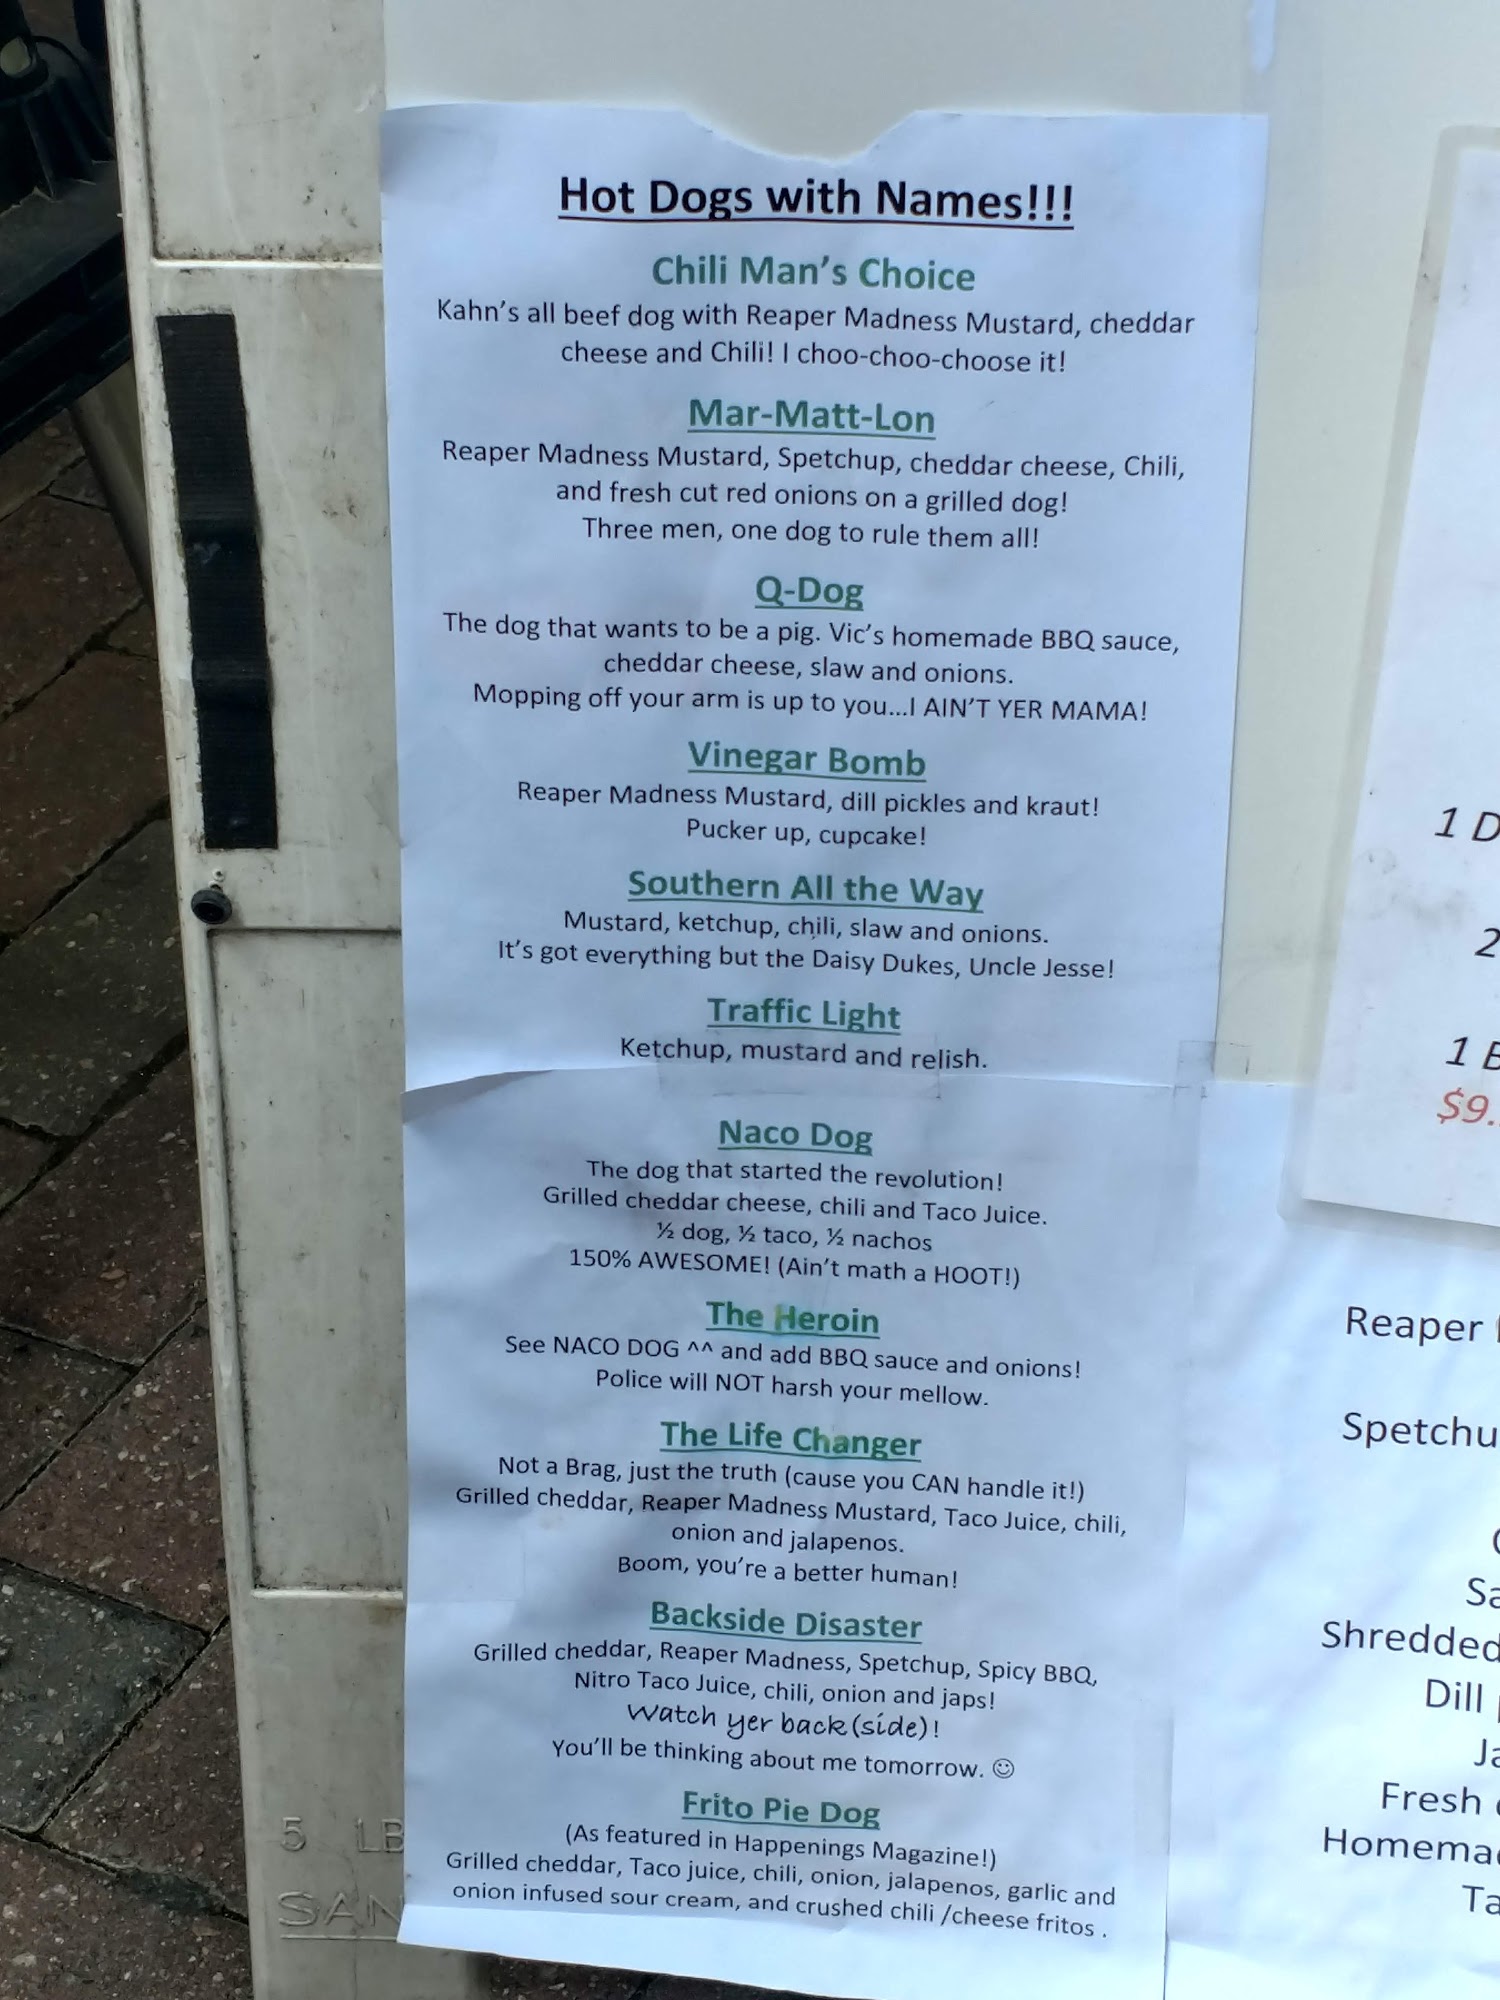 Hot Dogs with Names!!!
Chili Man's Choice
Kahn's all beef dog with Reaper Madness Mustard, cheddar
cheese and Chili! I choo-choo-choose it!
Mar-Matt-Lon
Reaper Madness Mustard, Spetchup, cheddar cheese, Chili,
and fresh cut red onions on a grilled dog!
Three men, one dog to rule them all!
Q-Dog
The dog that wants to be a pig. Vic's homemade BBQ sauce,
cheddar cheese, slaw and onions.
Mopping off your arm is up to you...I AIN'T YER MAMA!
Vinegar Bomb
Reaper Madness Mustard, dill pickles and kraut!
Pucker up, cupcake!
Southern All the Way
Mustard, ketchup, chili, slaw and onions.
It's got everything but the Daisy Dukes, Uncle Jesse!
Traffic Light
Ketchup, mustard and relish.
Naco Dog
The dog that started the revolution!
Grilled cheddar cheese, chili and Taco Juice.
½ dog, ½ taco, ½ nachos
150% AWESOME! (Ain't math a HOOT!)
The Heroin
See NACO DOG ^^ and add BBQ sauce and onions!
Police will NOT harsh your mellow.
The Life Changer
Not a Brag, just the truth (cause you CAN handle it!)
Grilled cheddar, Reaper Madness Mustard, Taco Juice, chili,
onion and jalapenos.
Boom, you're a better human!
Backside Disaster
Grilled cheddar, Reaper Madness, Spetchup, Spicy BBQ,
Nitro Taco Juice, chili, onion and japs!
Watch yer back(side)!
You'll be thinking about me tomorrow. ☺
Frito Pie Dog
(As featured in Happenings Magazine!)
Grilled cheddar, Taco juice, chili, onion, jalapenos, garlic and
onion infused sour cream, and crushed chili /cheese fritos .
5 LB
SAN
1 D
2
1 B
$9.
Reaper
Spetchu
Sa
Shredded
Dill
Ja
Fresh
Homema
Ta